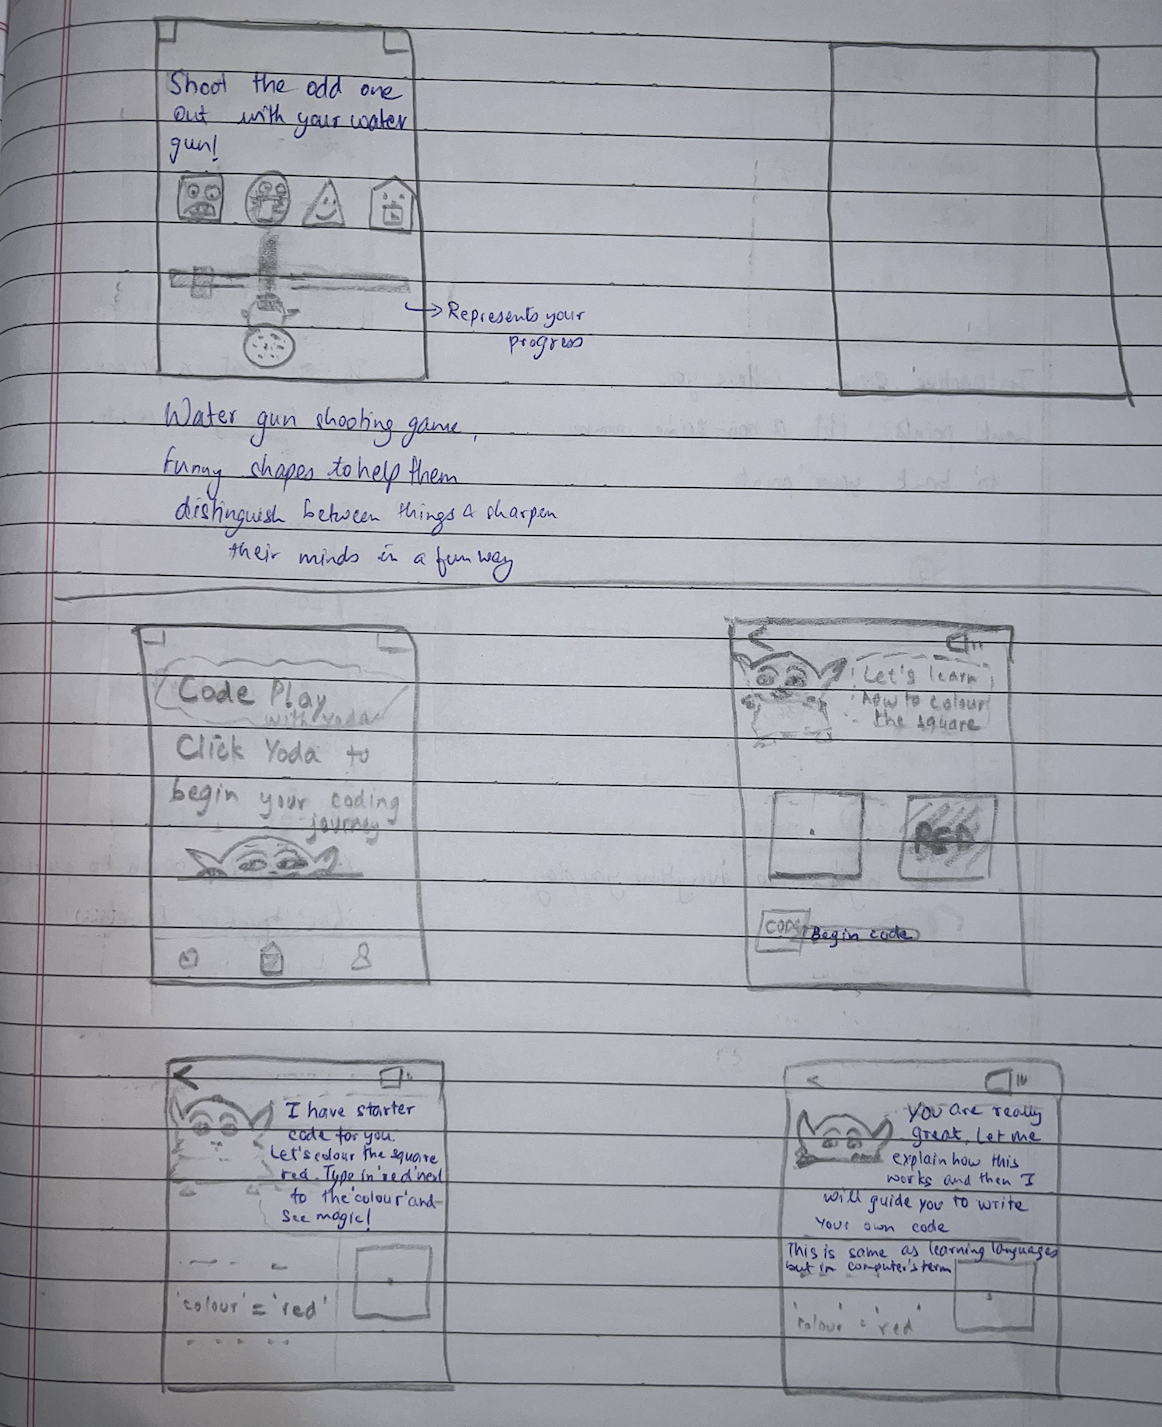 Shoot the odd one
out with your water
gun!
Represents your
progress
Water gun shooting game,
funny shapes to help them
distinguish between things & sharpen
their minds in a fun way
Code Play
with Yoda
Click Yoda to
begin your coding
journey
Let's learn
how to colour
the square
RED
CODE
Begin code
I have starter
code for you.
Let's colour the square
red. Type in 'red' next
to the 'colour' and
see magic!
'colour' = 'red'
You are really
great, Let me
explain how this
works and then I
will guide you to write
your own code
This is same as learning languages
but in computer's term
'colour' = 'red'